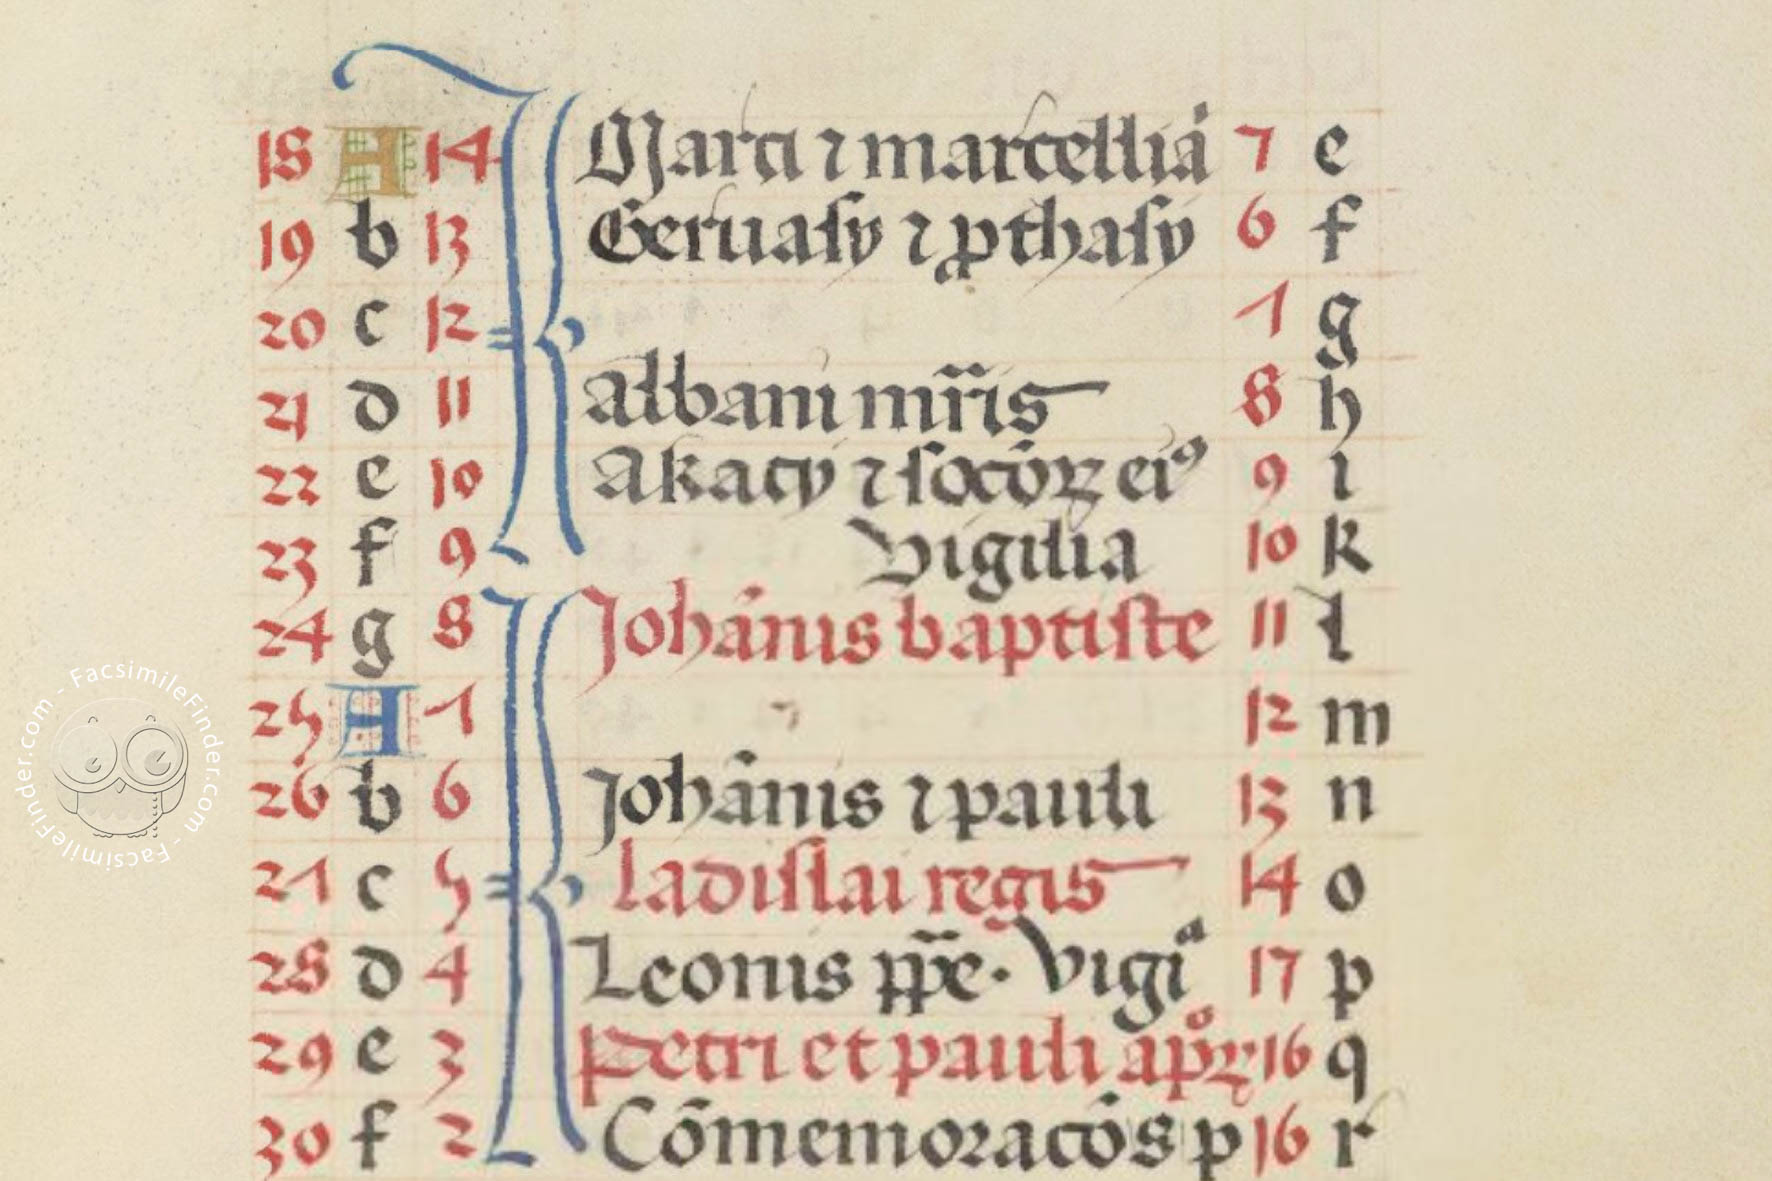 18 A 14 Marci ⁊ marcelliā 7 e
19 b 13 Geruasy ⁊ ꝓthasy 6 f
20 c 12 7 g
21 d 11 Albani mr̄is 8 h
22 e 10 Akacy ⁊ socōꝝ eiꝰ 9 i
23 f 9 Vigilia 10 k
24 g 8 Johānis baptiste 11 l
25 A 7 12 m
26 b 6 Johānis ⁊ pauli 13 n
27 c 5 Ladislai regis 14 o
28 d 4 Leonis pp̄e · Vigiᵃ 17 p
29 e 3 Petri et pauli apᵒꝝ 16 q
30 f 2 Cōmemoracōs p 16 r
FacsimileFinder.com - FacsimileFinder.com - FacsimileFinder.com